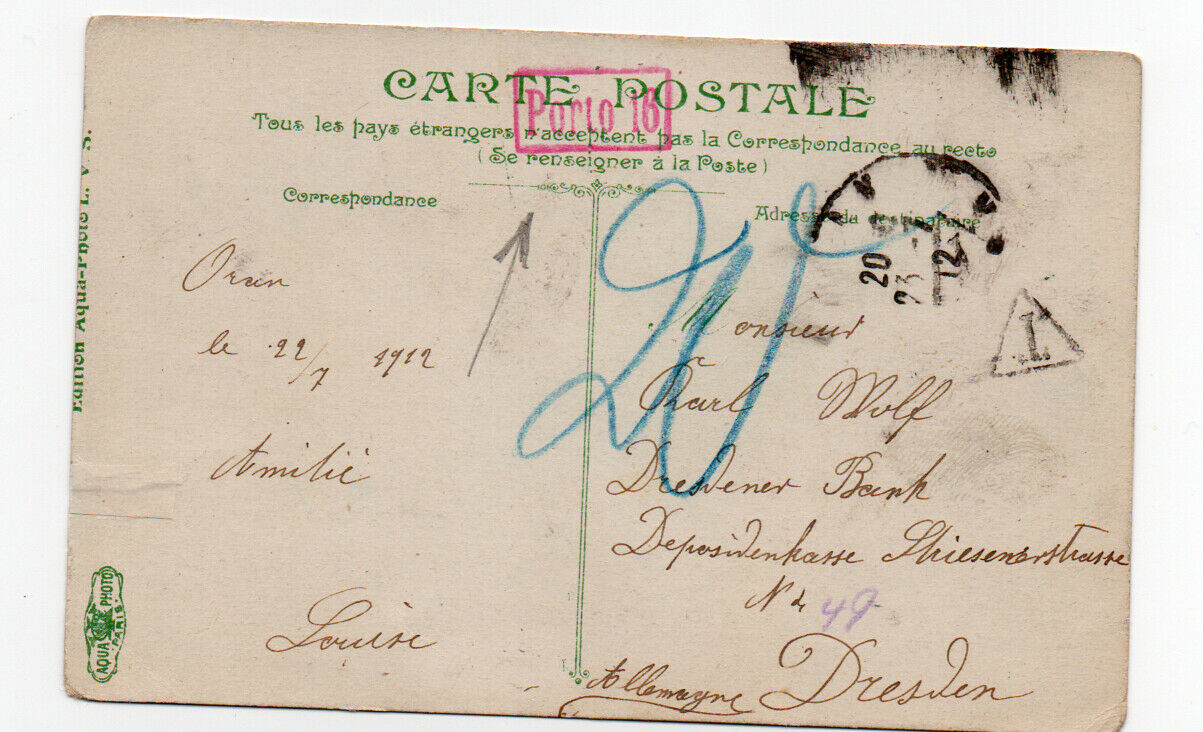 CARTE POSTALE
Porto 16
Tous les pays étrangers n'acceptent pas la Correspondance au recto
(Se renseigner à la Poste)
Correspondance
Adresse du destinataire
Edition Aqua-Photo L. V. S.
Oran
le 22/7 1912
Amitié
Louise
20
23 - 7
12
T
20
Monsieur
Karl Wolf
Dresdener Bank
Deposidenkasse Striesenerstrasse
No 49
Dresden
Allemagne
AQUA PHOTO
PARIS